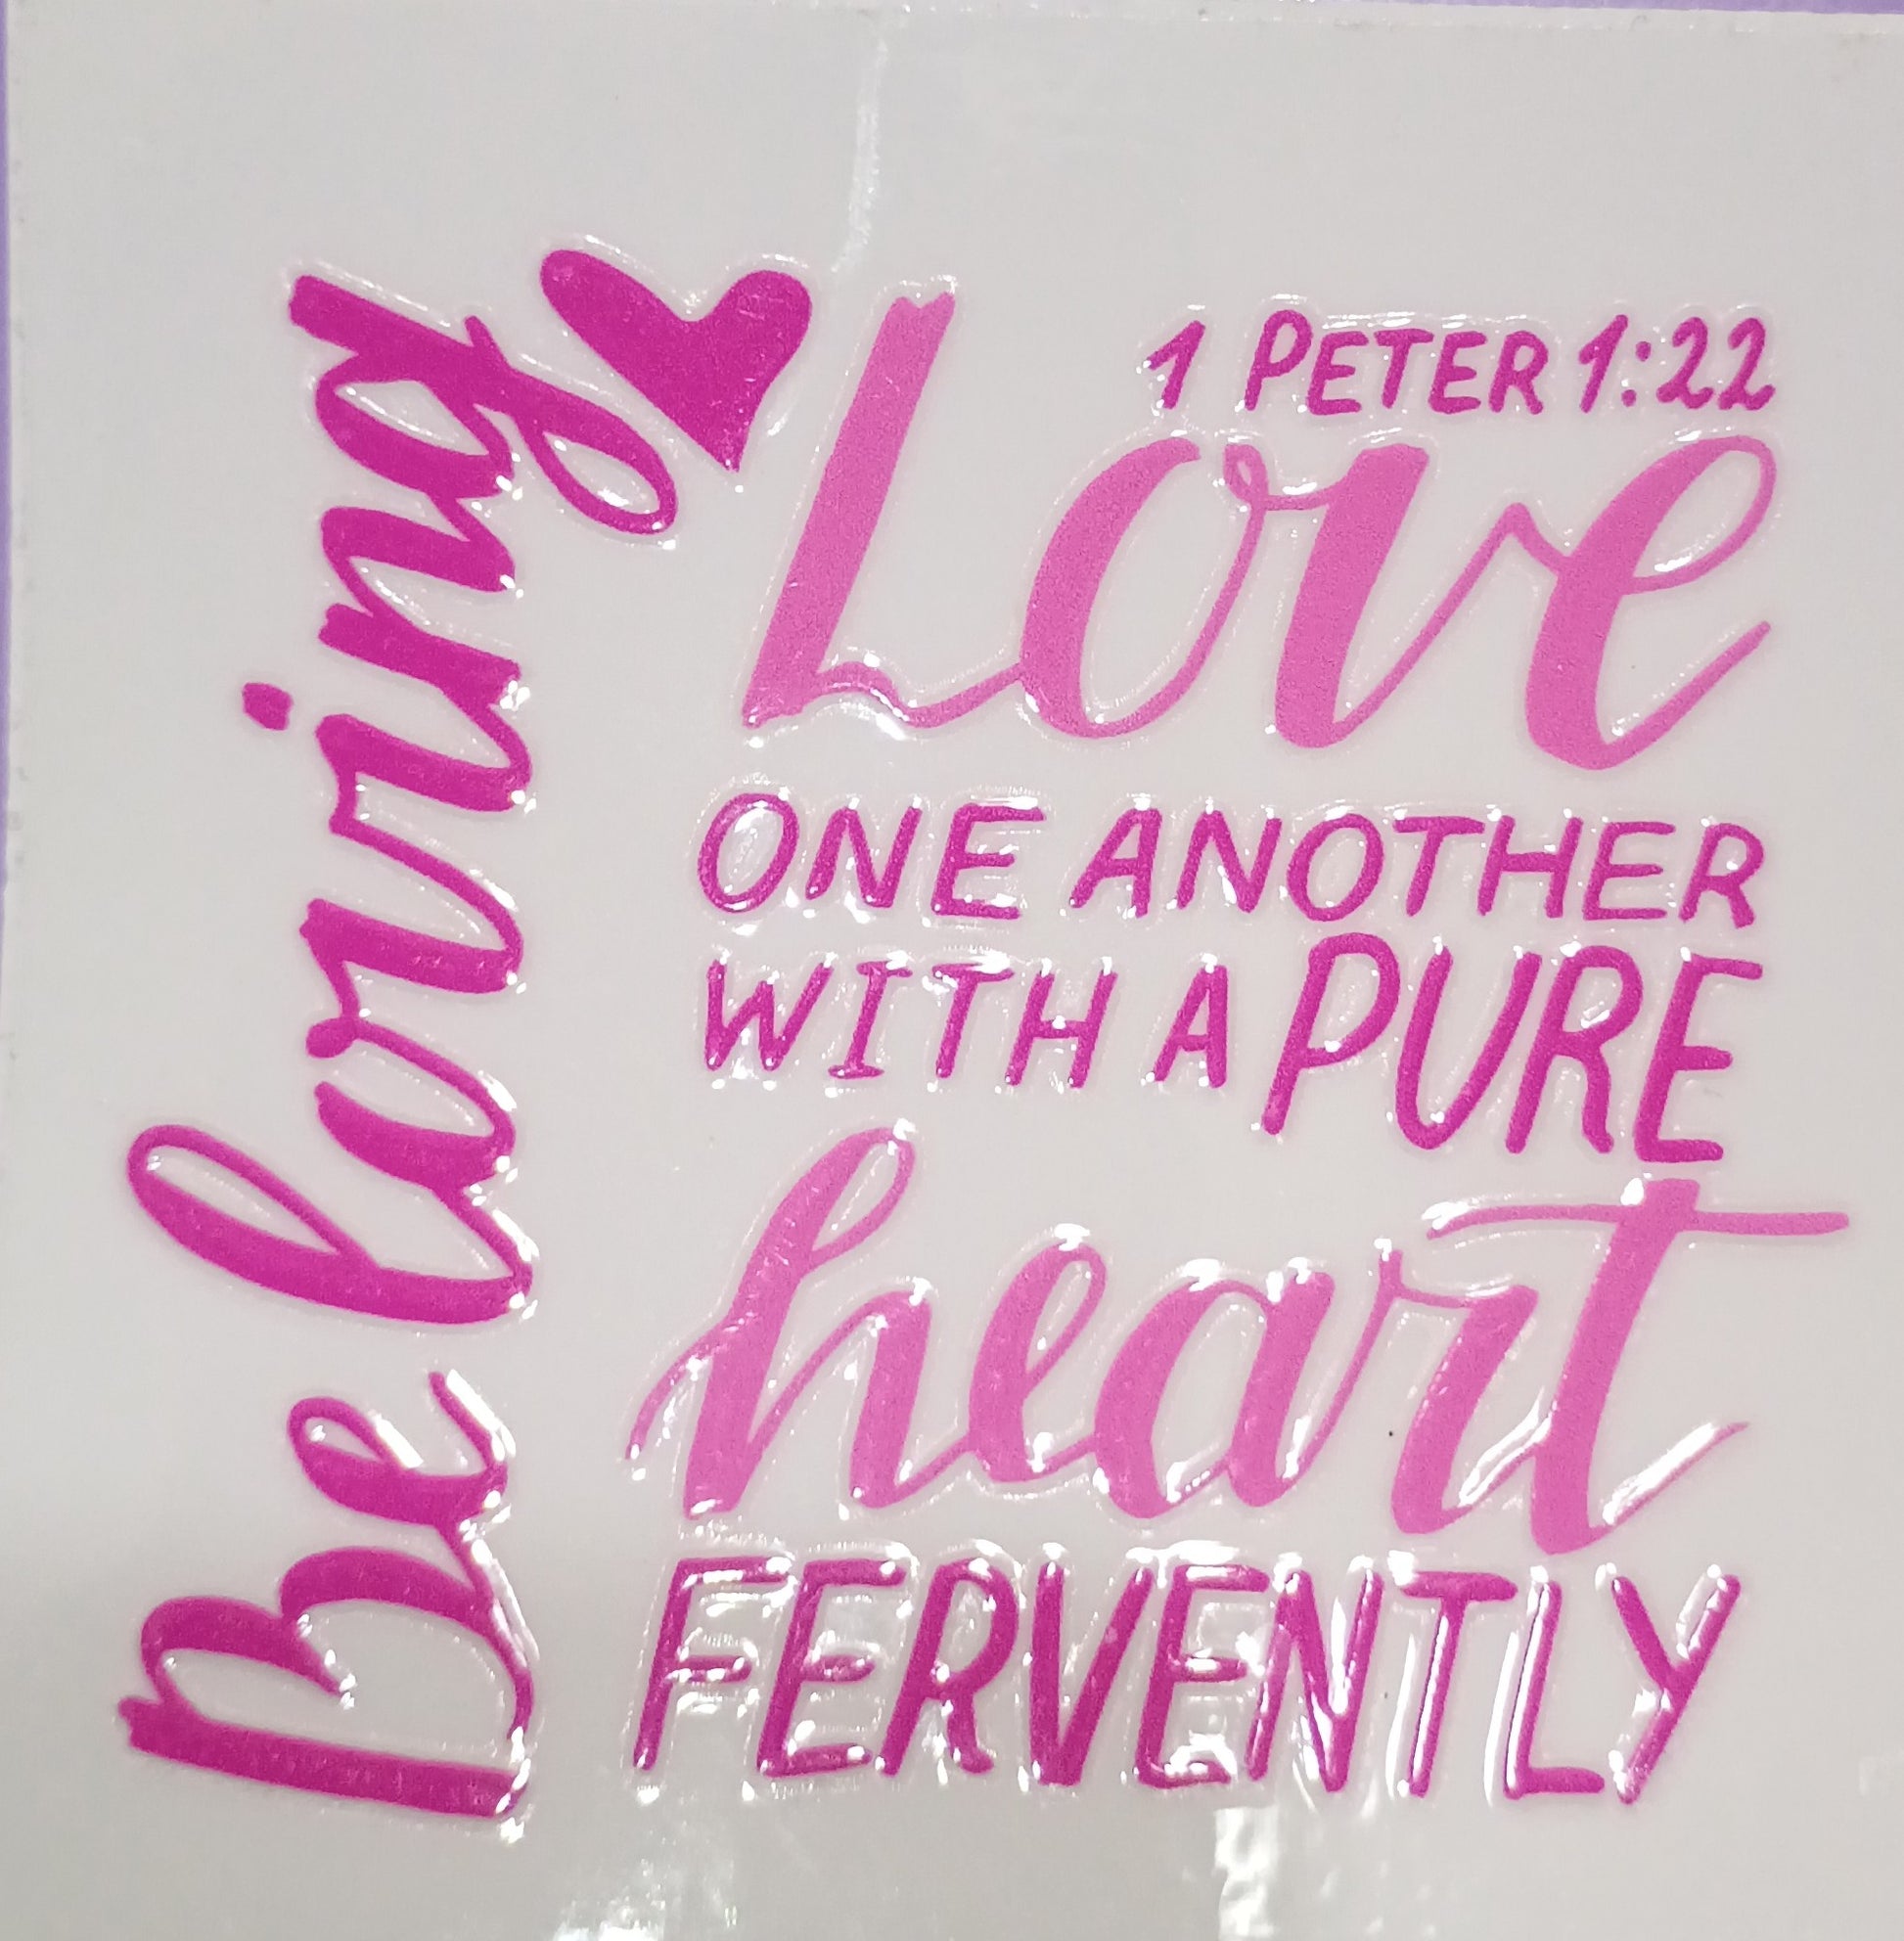 Be loving
1 PETER 1:22
Love
ONE ANOTHER
WITH A PURE
heart
FERVENTLY